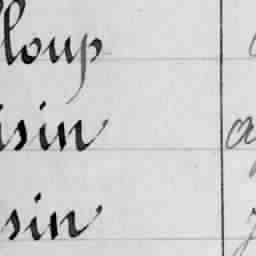 loup
isin a
sin